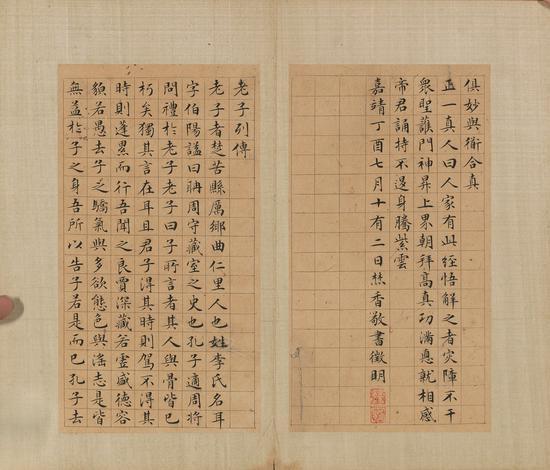 俱妙與衟合真
正一真人曰人家有此經悟解之者灾障不干
衆聖護門神昇上界朝拜高真功滿悳就相感
帝君誦持不退身騰紫雲
嘉靖丁酉七月十有二日焚香敬書徵明
老子列傳
老子者楚苦縣厲鄉曲仁里人也姓李氏名耳
字伯陽諡曰聃周守藏室之史也孔子適周將
問禮於老子老子曰子所言者其人與骨皆已
朽矣獨其言在耳且君子得其時則駕不得其
時則蓬累而行吾聞之良賈深藏若虛盛德容
貌若愚去子之驕氣與多欲態色與滛志是皆
無益於子之身吾所以告子若是而已孔子去